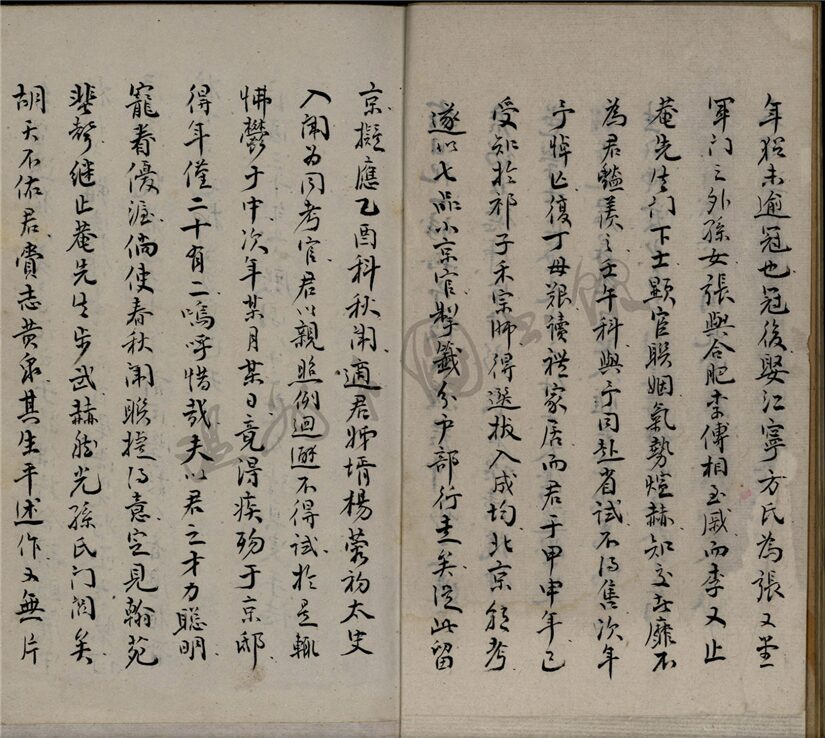 年猶未逾冠也冠後娶江寧方氏為張又堂
軍门之外孫女張與合肥李傅相至戚而李又止
菴先生门下士顯宦联姻氣勢煊赫知交靡不
為君豔羡之壬午科與予同赴省試不得售次年
予悼亡復丁母艱讀禮家居而君于甲申年已
受知於祁子禾宗師得選拔入成均北京朝考
遂以七品小京官掣籤分户部行走矣從此留
京擬應乙酉科秋闱適君姊壻楊蓉初太史
入闱为同考官君以親照例迴避不得試於是輒
怫鬱于中次年某月某日竟得疾殁于京邸
得年僅二十有二嗚呼惜哉夫以君之才力聰明
寵眷優渥倘使春秋闱联捷得意定見翰苑
蜚聲继止菴先生步武赫然光孫氏门閭矣
胡天不佑君賫志黄泉其生平述作又無片